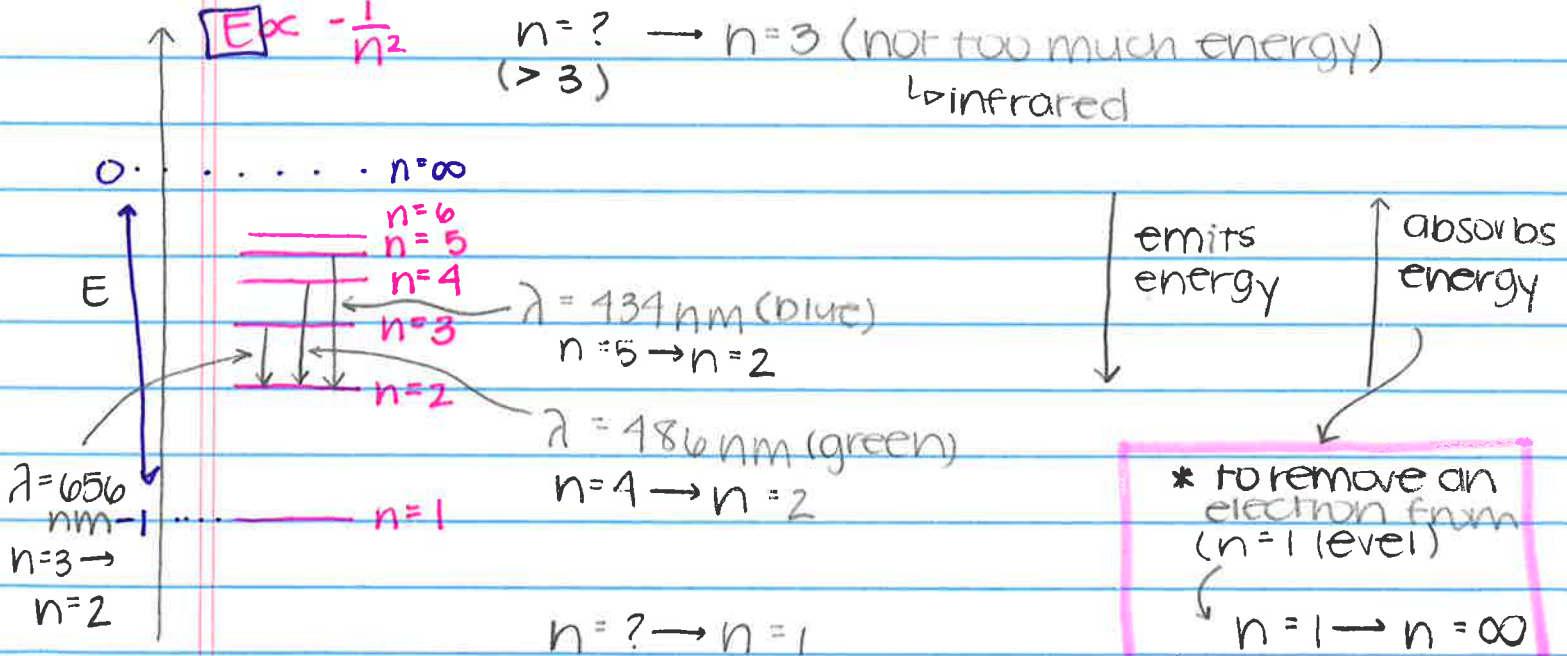 E ∝ -1/n²
n = ? → n = 3 (not too much energy)
(> 3)
↳ infrared
0
n = ∞
n = 6
n = 5
n = 4
n = 3
n = 2
n = 1
-1
E
λ = 434 nm (blue)
n = 5 → n = 2
λ = 486 nm (green)
n = 4 → n = 2
λ = 656
nm
n = 3 →
n = 2
n = ? → n = 1
emits
energy
absorbs
energy
* to remove an
electron from
(n = 1 level)
n = 1 → n = ∞